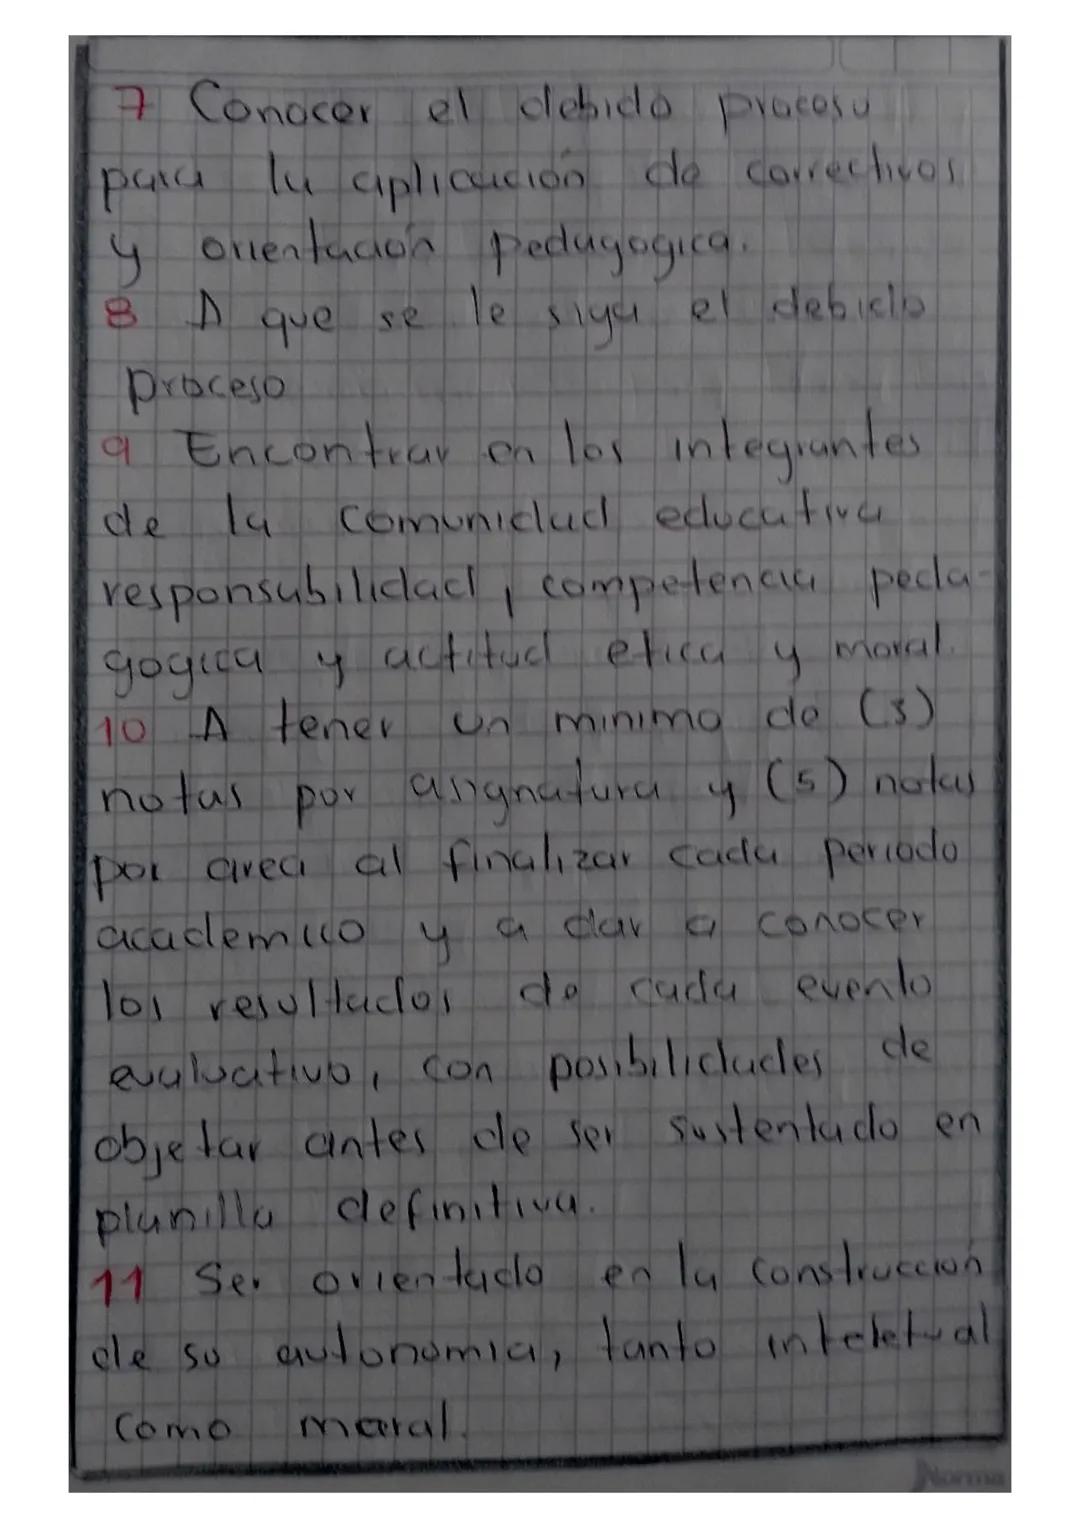 7 Conocer el debido proceso
para la aplicación de correctivos
y orientación pedagogica.
8 A que se le siga el debido
proceso
9 Encontrar en los integrantes
de la comunidad educativa
responsabilidad, competencia peda-
gogica y actitud etica y moral.
10 A tener un minimo de (3)
notas por asignatura y (5) notas
por area al finalizar cada periodo
academico y a dar a conocer
los resultados de cada evento
evaluativo, con posibilidades de
objetar antes de ser sustentado en
planilla definitiva.
11 Ser orientado en la construcción
de su autonomia, tanto inteletual
como moral.
Norma